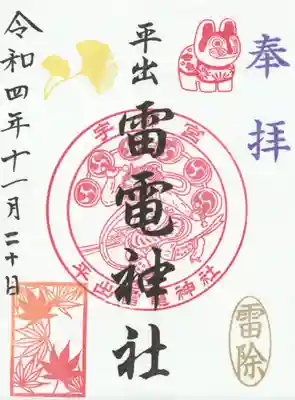 奉拝
雷除
平出
雷電神社
宇都宮
平出雷電神社
令和四年十一月二十日